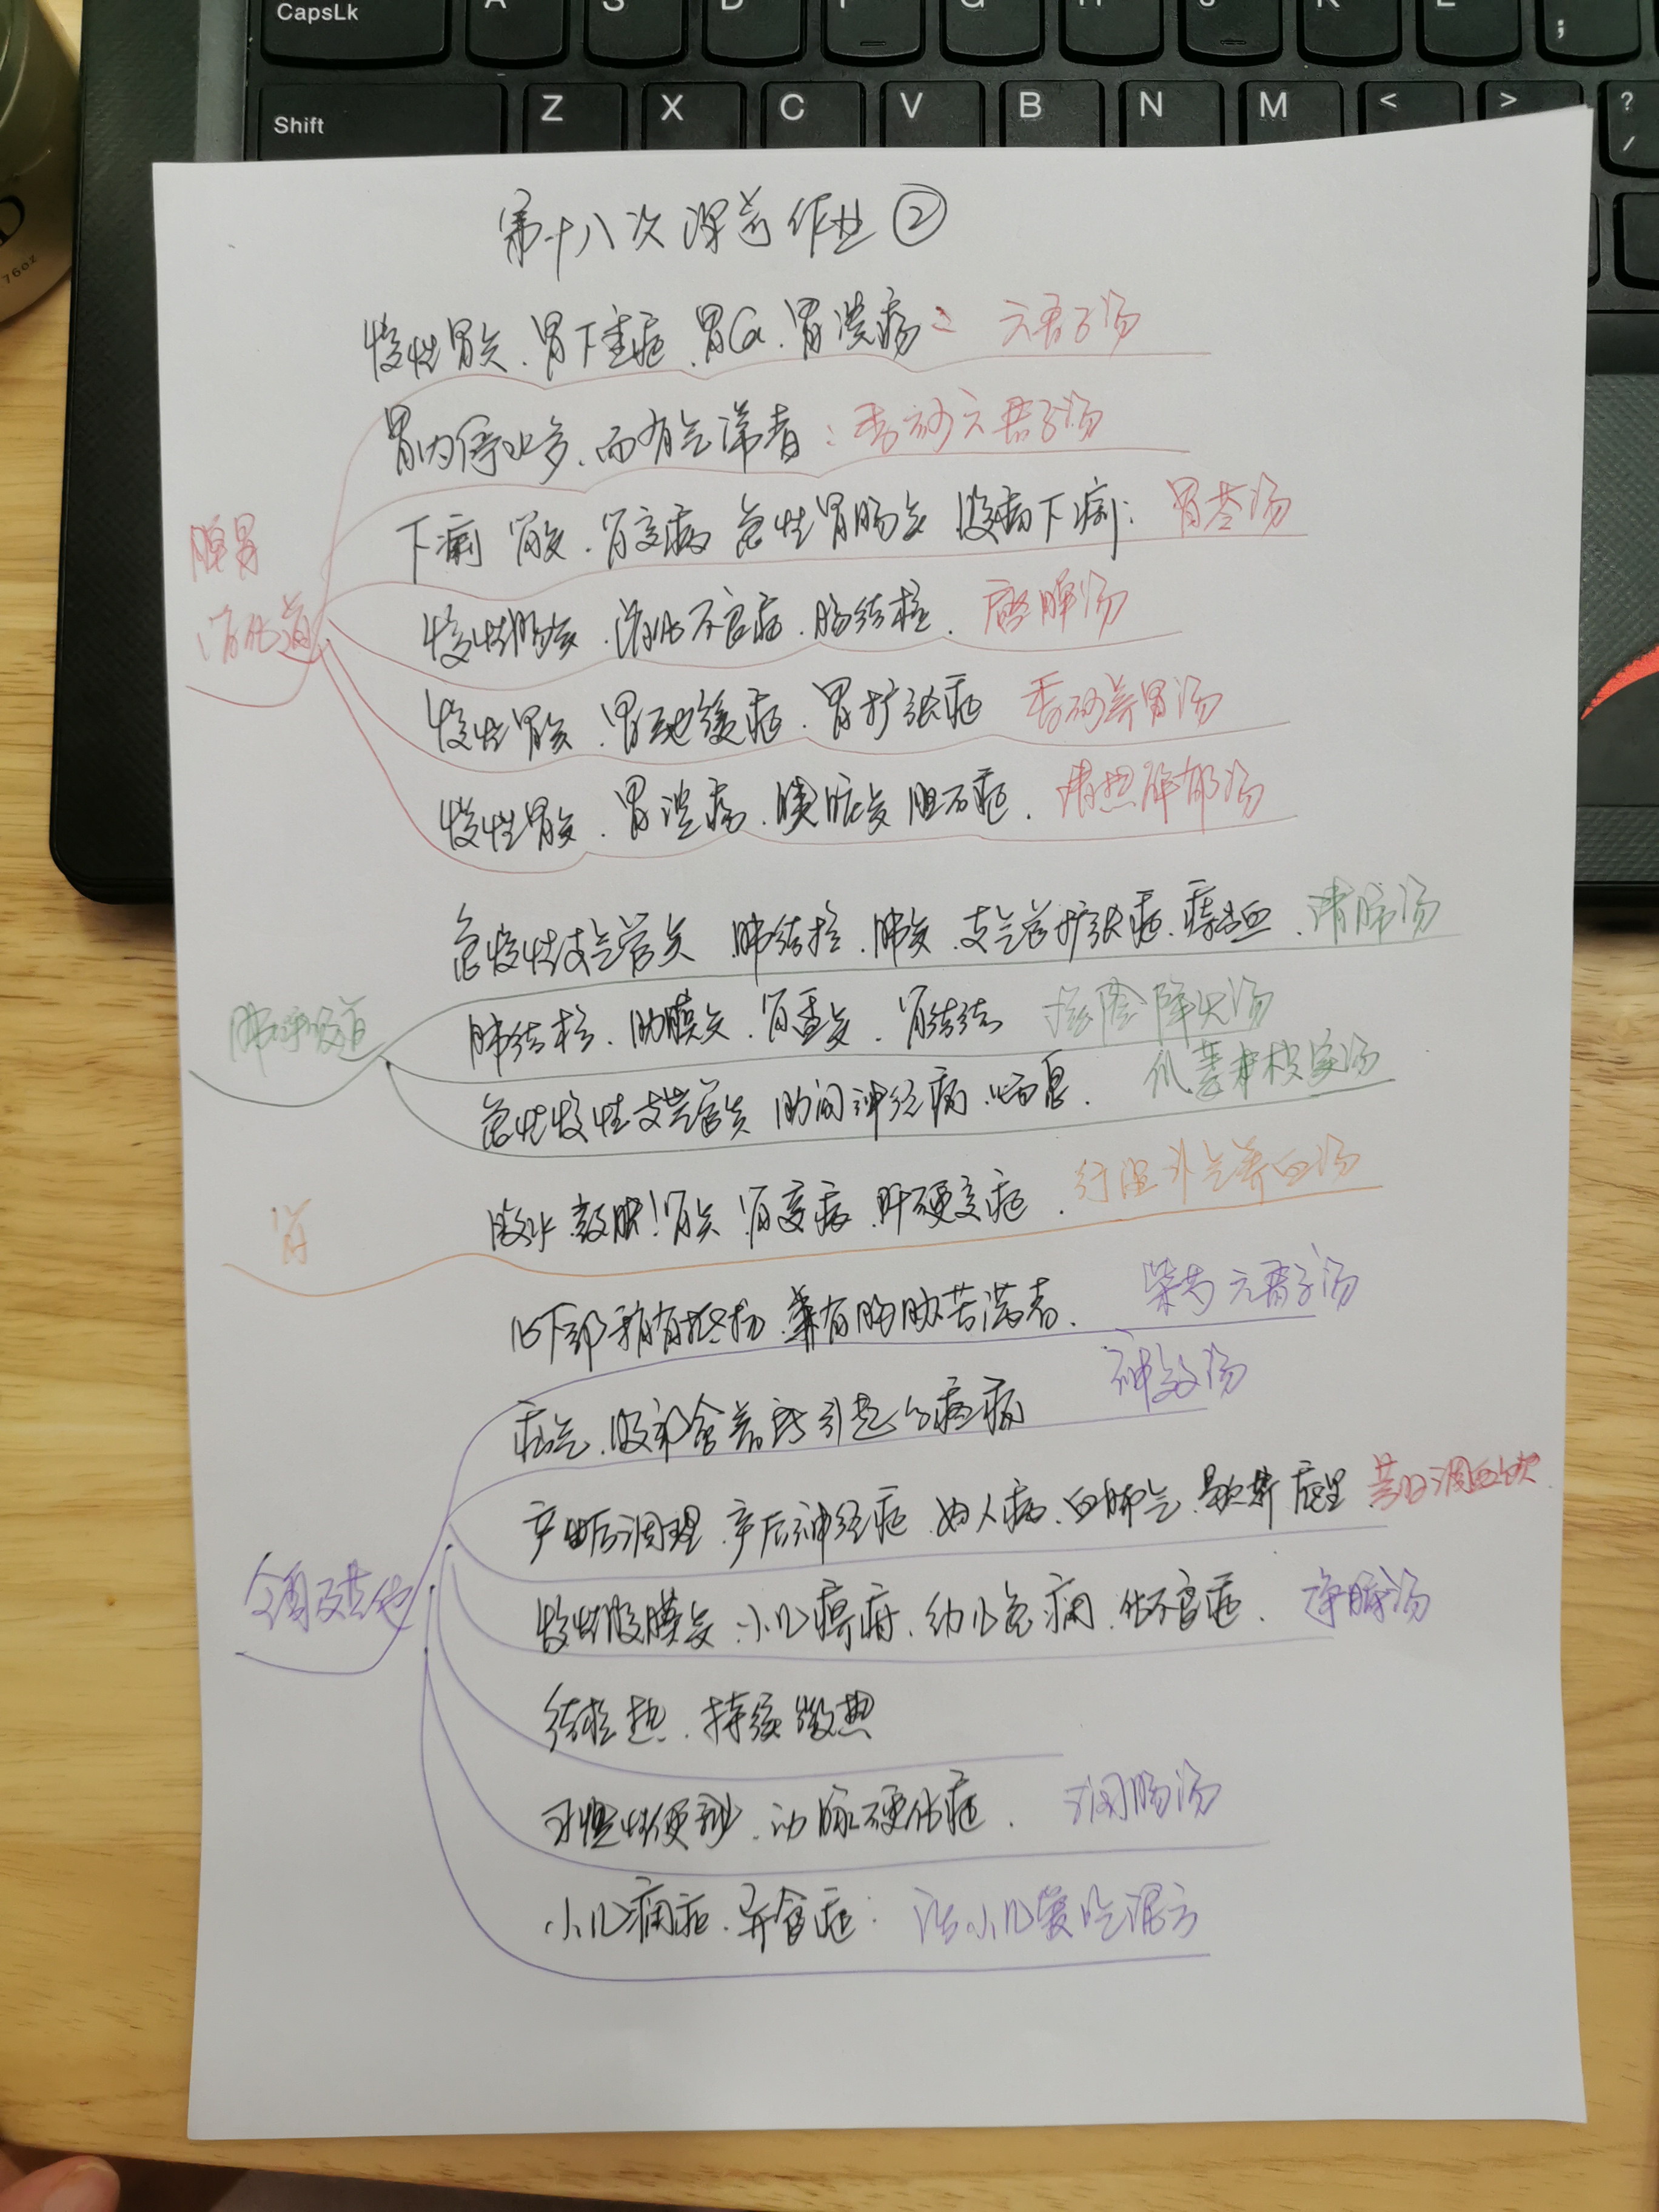 CapsLk A S D F G H J K L ;
Shift Z X C V B N M < > ? /
76oz
第十八次课前作业②
慢性胃炎.胃下垂症.胃Ca.胃溃疡: 六君子汤
胃内停水多.而有气滞者:香砂六君子汤
脾胃
消化道
下痢 肾炎.肾变病 急性胃肠炎 腹痛下痢:胃苓汤
慢性肠炎.消化不良症.肠结核. 启脾汤
慢性胃炎.胃弛缓症.胃扩张症 香砂养胃汤
慢性胃炎.胃溃疡.胰脏炎 胆石症. 清热解郁汤
急慢性支气管炎 肺结核.肺炎.支气管扩张症.痔出血.清肺汤
肺呼吸道
肺结核.肋膜炎.肾盂炎.肾结核 滋阴降火汤
急性慢性支气管炎 肋间神经痛.喘息. 瓜蒌枳实汤
肾
腹水.鼓胀!肾炎 肾变病.肝硬变症. 行湿补气养血汤
心下部稍有抵抗.兼有胸胁苦满者. 柴芍六君子汤
疝气.腹部 引起的疼痛 神效汤
产后调理.产后神经症.妇人病.血脚气. 芎归调血饮
全身及其他
慢性腹膜炎.小儿 .幼儿 .化不良症.
结核热.持续微热
习惯性便秘.动脉硬化症. 润肠汤
小儿 症.异食症: 治小儿爱吃泥方